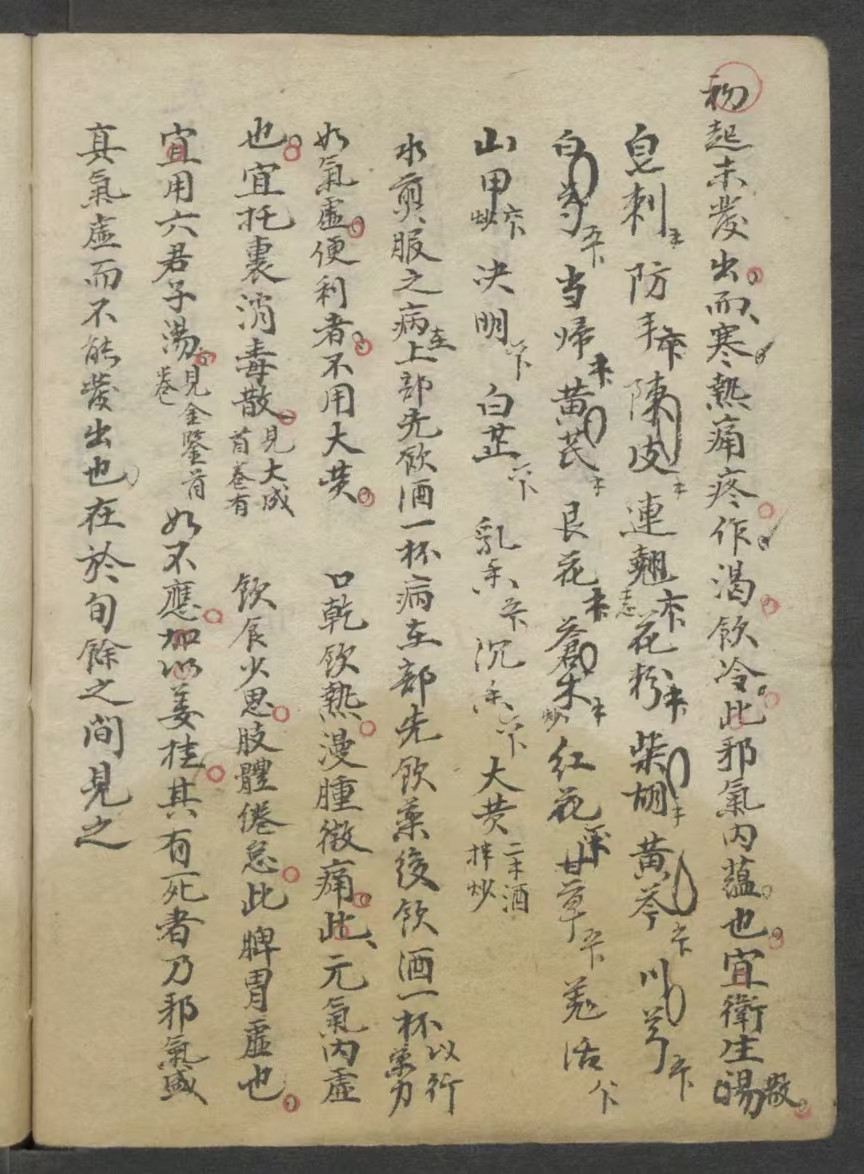 初起未發出而寒熱痛疼作渴飲冷此邪氣內蘊也宜衛生湯散
皂刺 防丰 陳皮 連翹 花粉 柴胡 黃芩 川芎
白芍 当歸 黃芪 艮花 蒼朮炒 紅花 甘草 羌活
山甲炒 决明 白芷 乳香 沉香 大黄二 酒拌炒
水煎服之病在上部先飲酒一杯病在部先飲藥後飲酒一杯以行藥力
如氣虛便利者不用大黄 口乾飲熱漫腫微痛此元氣內虛
也宜托裏消毒散見大成首卷有 飲食少思肢體倦怠此脾胃虛也
宜用六君子湯見金鑒首卷 如不應加以姜桂其有死者乃邪氣盛
真氣虛而不能發出也在於旬餘之間見之